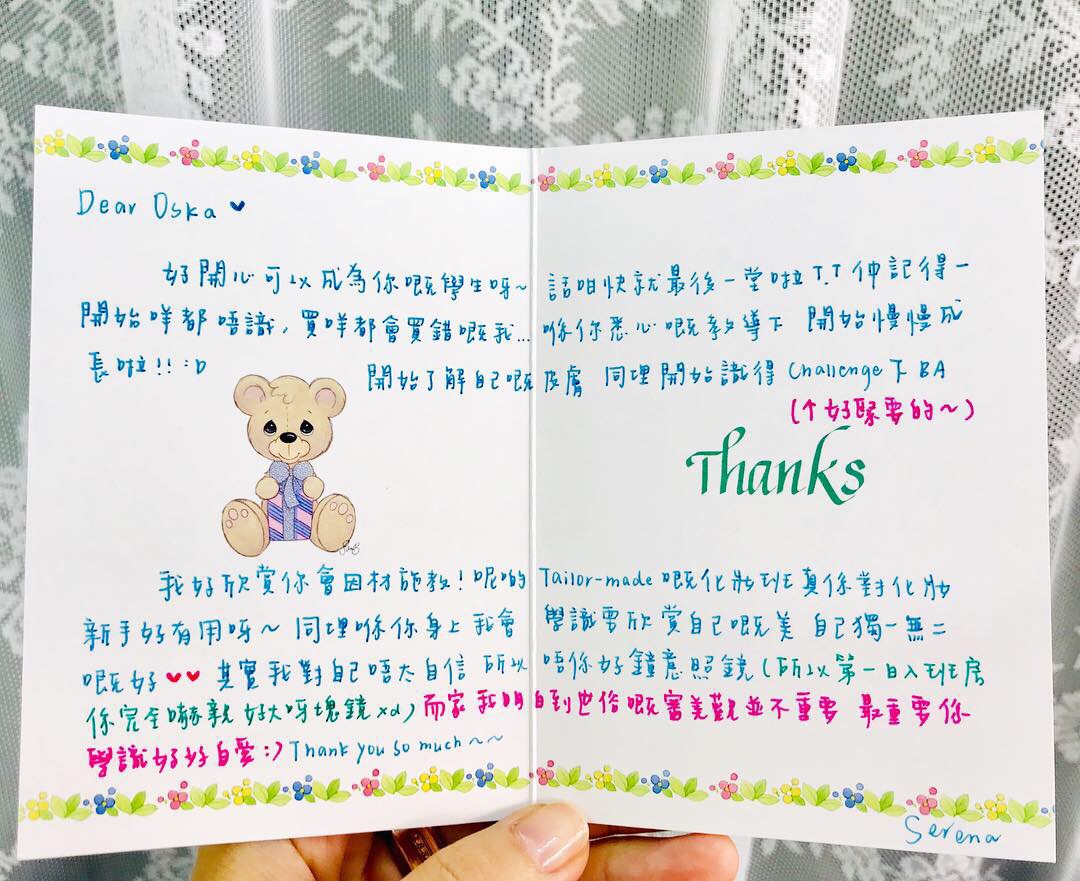 Dear Oska
好開心可以成為你嘅學生呀~ 話咁快就最後一堂啦 T.T 仲記得一
開始咩都唔識, 買咩都會買錯嘅我... 喺你悉心嘅教導下 開始慢慢成
長啦!! :D 開始了解自己嘅皮膚 同埋開始識得 Challenge 下 BA
(个好緊要的~)
Thanks
我好欣賞你會因材施教! 呢啲 Tailor-made 嘅化妝班真係對化妝
新手好有用呀~ 同埋喺你身上我會學識要欣賞自己嘅美 自己獨一無二
嘅好 其實我對自己唔太自信 所以唔係好鐘意照鏡 (所以第一日入班房
係完全嚇親 好大呀塊鏡 xd) 而家我明白到世俗嘅審美觀並不重要 最重要係
學識好好自愛 :) Thank you so much ~~
Serena